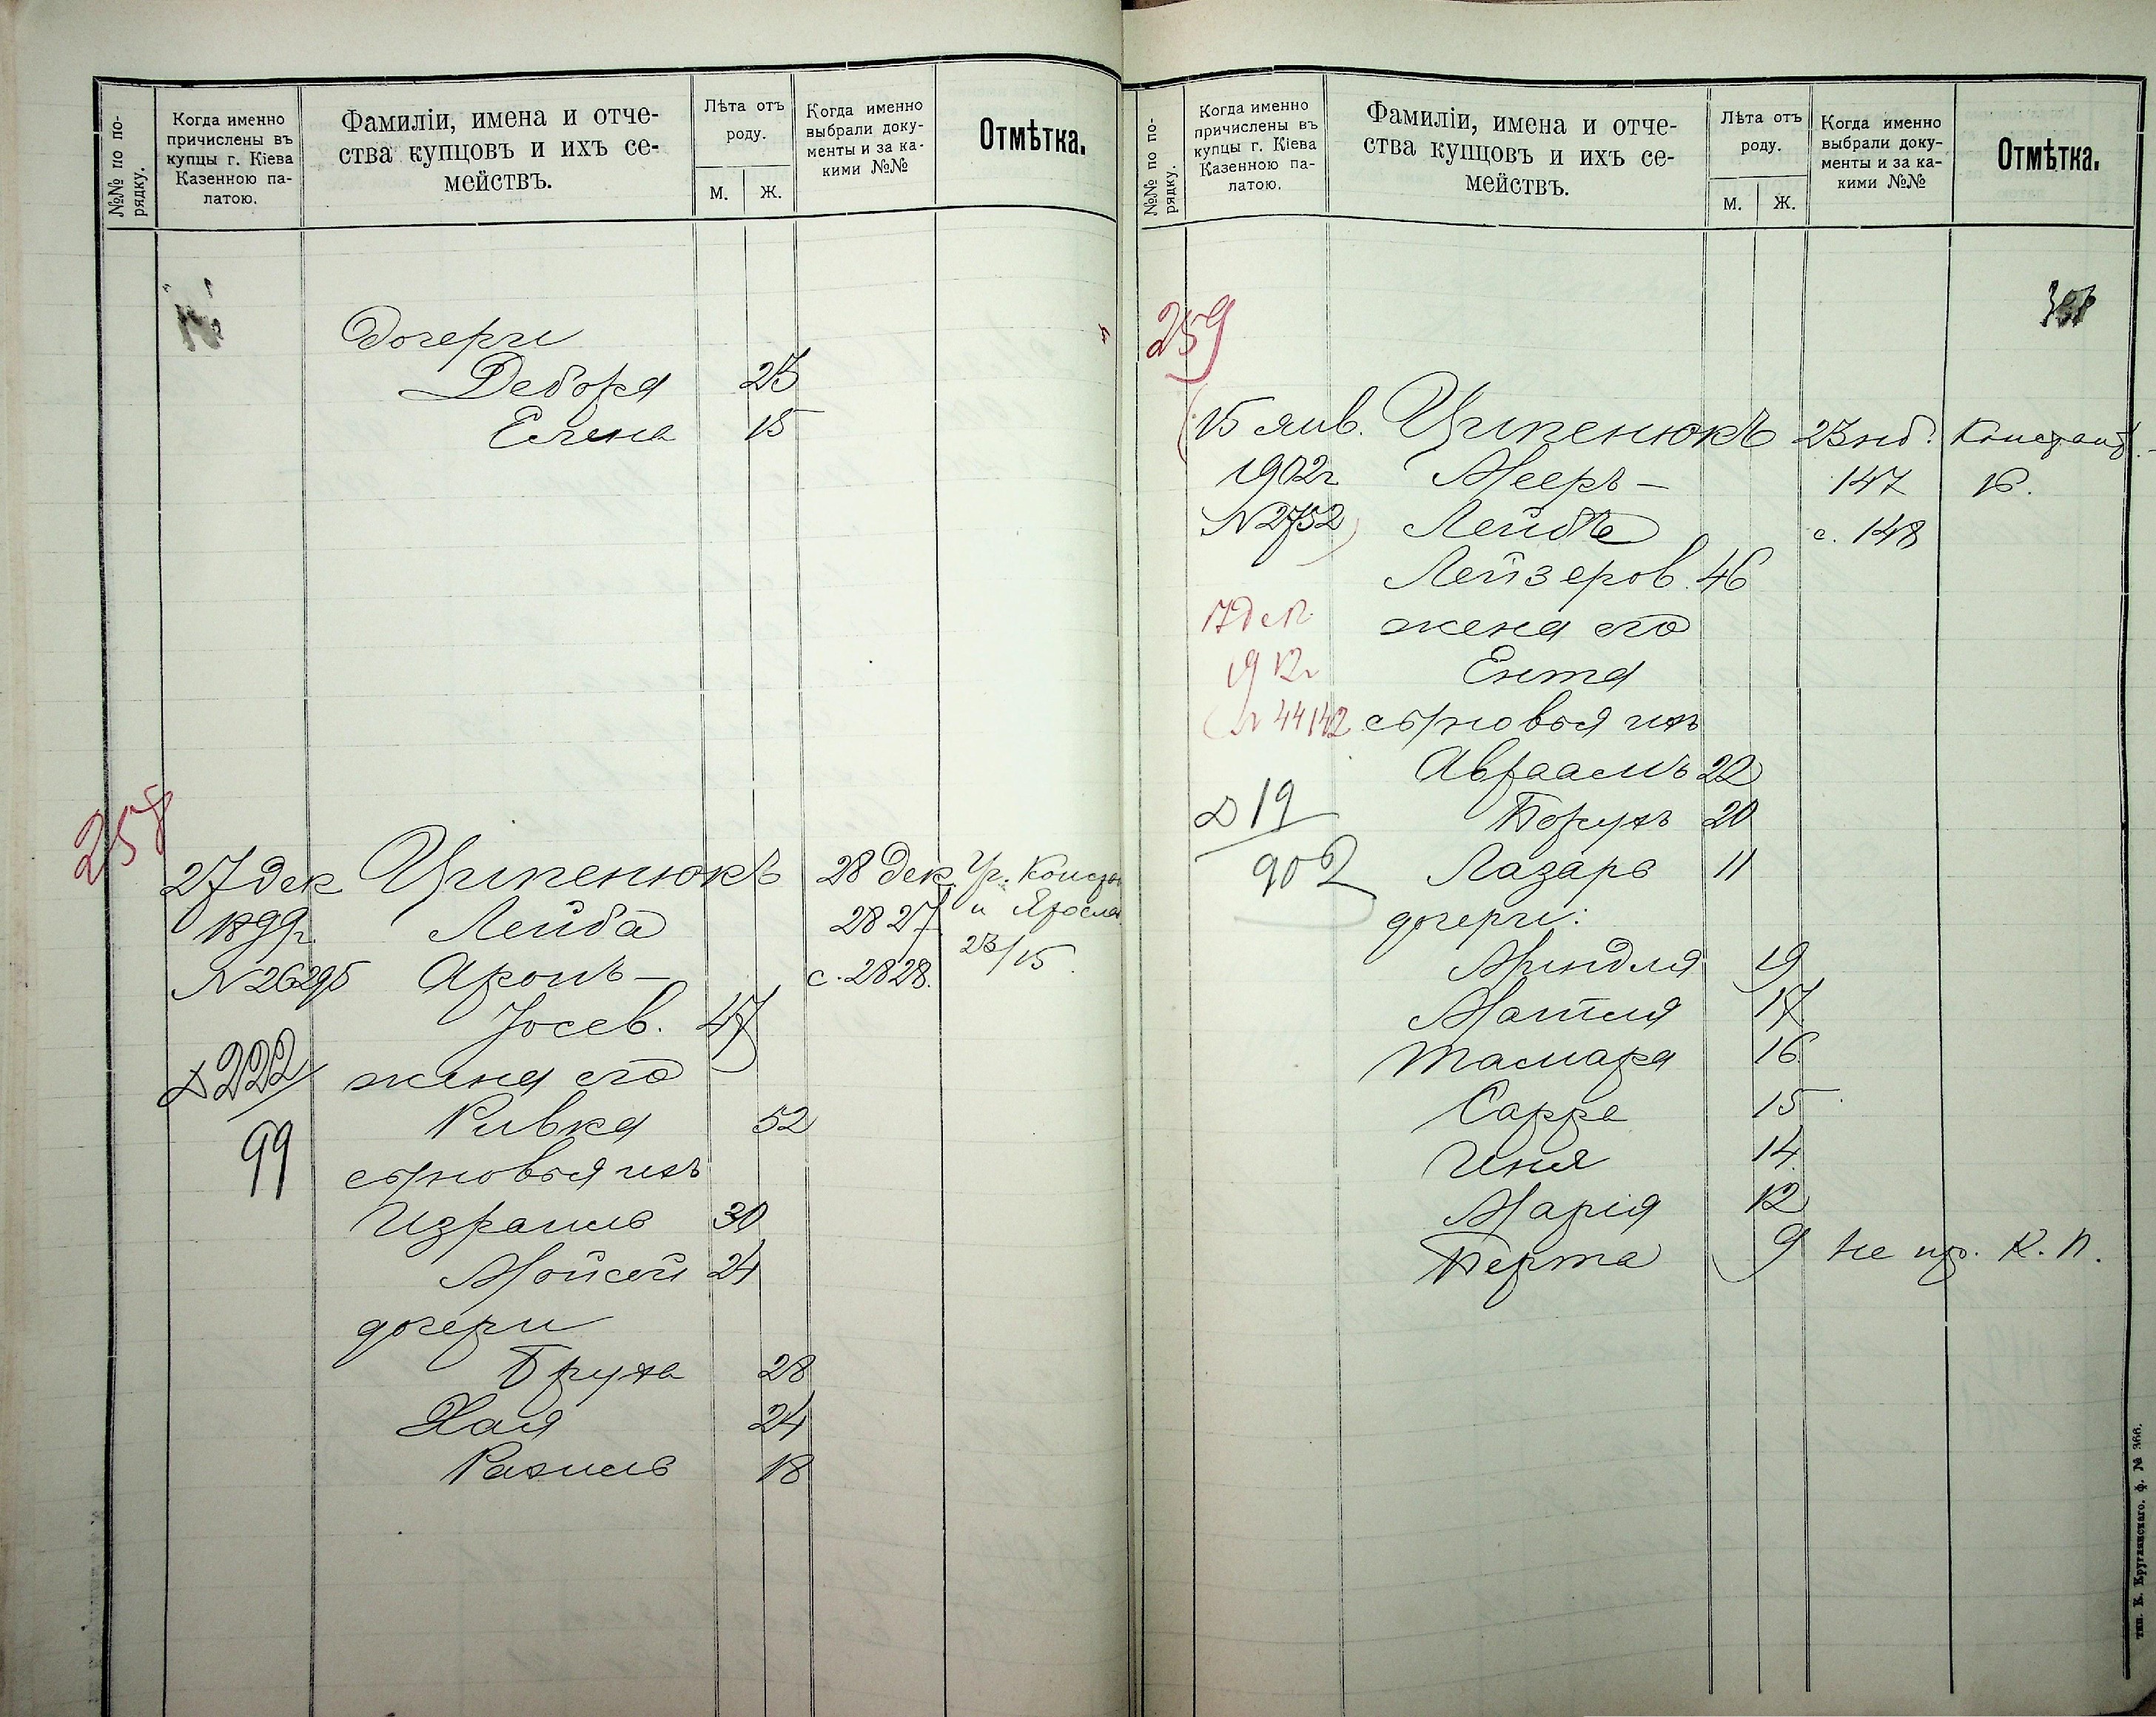 №№ по по-
рядку.
Когда именно
причислены въ
купцы г. Кіева
Казенною па-
латою.
Фамиліи, имена и отче-
ства купцовъ и ихъ се-
мействъ.
Лѣта отъ
роду.
М.
Ж.
Когда именно
выбрали доку-
менты и за ка-
кими №№
Отмѣтка.
Дочери
Дебора 23
Елена 15
258
27 дек Ципенюкъ 28 дек. Ур. Конста
1899г. Лейба 2827 и Яросла
N 26295 Аронъ- с. 2828. 23/15
Іосев. 47
222
99
жена его
Ривка 52
сыновья ихъ
Израиль 30
Мойсей 24
дочери
Бруха 28
Хая 24
Рахиль 18
№№ по по-
рядку.
Когда именно
причислены въ
купцы г. Кіева
Казенною па-
латою.
Фамиліи, имена и отче-
ства купцовъ и ихъ се-
мействъ.
Лѣта отъ
роду.
М.
Ж.
Когда именно
выбрали доку-
менты и за ка-
кими №№
Отмѣтка.
259
15 янв. Ципенюкъ 23 нб. Констант.
1902г Мееръ- 147 16.
N 2752 Лейба с. 148
Лейзеров. 46
17 дек
1912г
N 44142
жена его
Ента
сыновья ихъ
Авраамъ 22
Борухъ 20
Лазарь 11
19
902
дочери:
Миндля 19
Матля 17
Тамара 16
Сарра 15
Иня 14
Марія 12
Берта 9 не пр. К. П.
тип. К. Круглянскаго. ф. № 366.